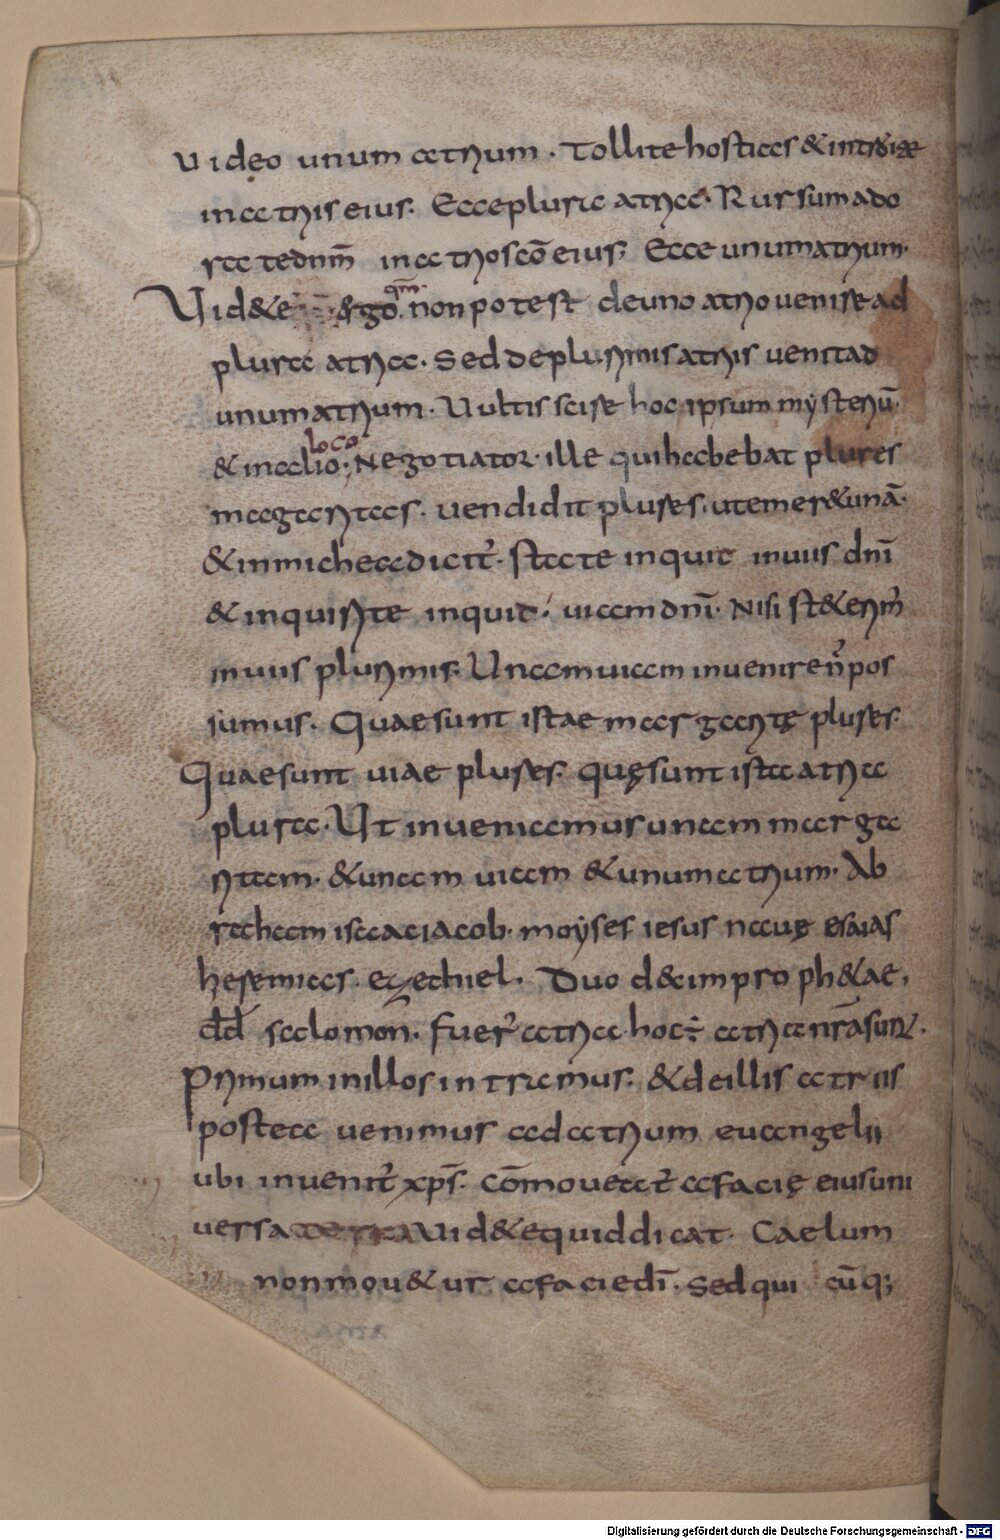 Video unum atrium. Tollite hostias & introite
in atriis eius. Ecce plura atria. Rursum ado
rate dnm̄ in atrio scō eius. Ecce unum atrium.
Vid&e ergo qm̄ non potest de uno atrio venire ad
plura atria. Sed de plurimis atriis venit ad
unum atrium. Vultis scire hoc ipsum mysteriū.
& in alio loco. Negotiator ille qui habebat plures
margaritas. vendidit plures. ut emer&unā.
& in michea dicit̄. state inquit in viis dnī
& inquirite inquit. viam dnī. Nisi st&erim̄
in viis plurimis. Unam viam invenire n̄ pos
sumus. Quae sunt istae margaritę plures.
Quae sunt viae plures. quę sunt ista atria
plura. Ut inveniamur unam marga
ritam. & unam viam & unum atrium. Ab
raham isaac iacob. moyses iesus nauę esaias
heremias. ezechiel. Duo d&im proph&ae.
dd̄ salomon. fuer̄ atria. hoc ÷ atria nr̄a sunt.
Primum in illos intramus. & de illis atriis
postea venimus ad atrium euangelii
ubi invenit̄ xp̄s. Cōmoveat̄ a facię eius uni
versa terra Vid&e quid dicat. Caelum
non mov&ur a facie dī. Sed qui cūq;
Digitalisierung gefördert durch die Deutsche Forschungsgemeinschaft - DFG